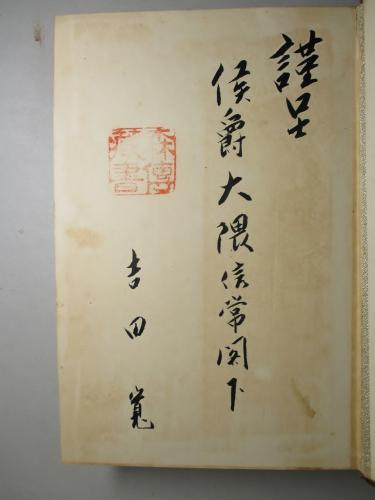 謹呈
侯爵大隈信常閣下
吉田寛